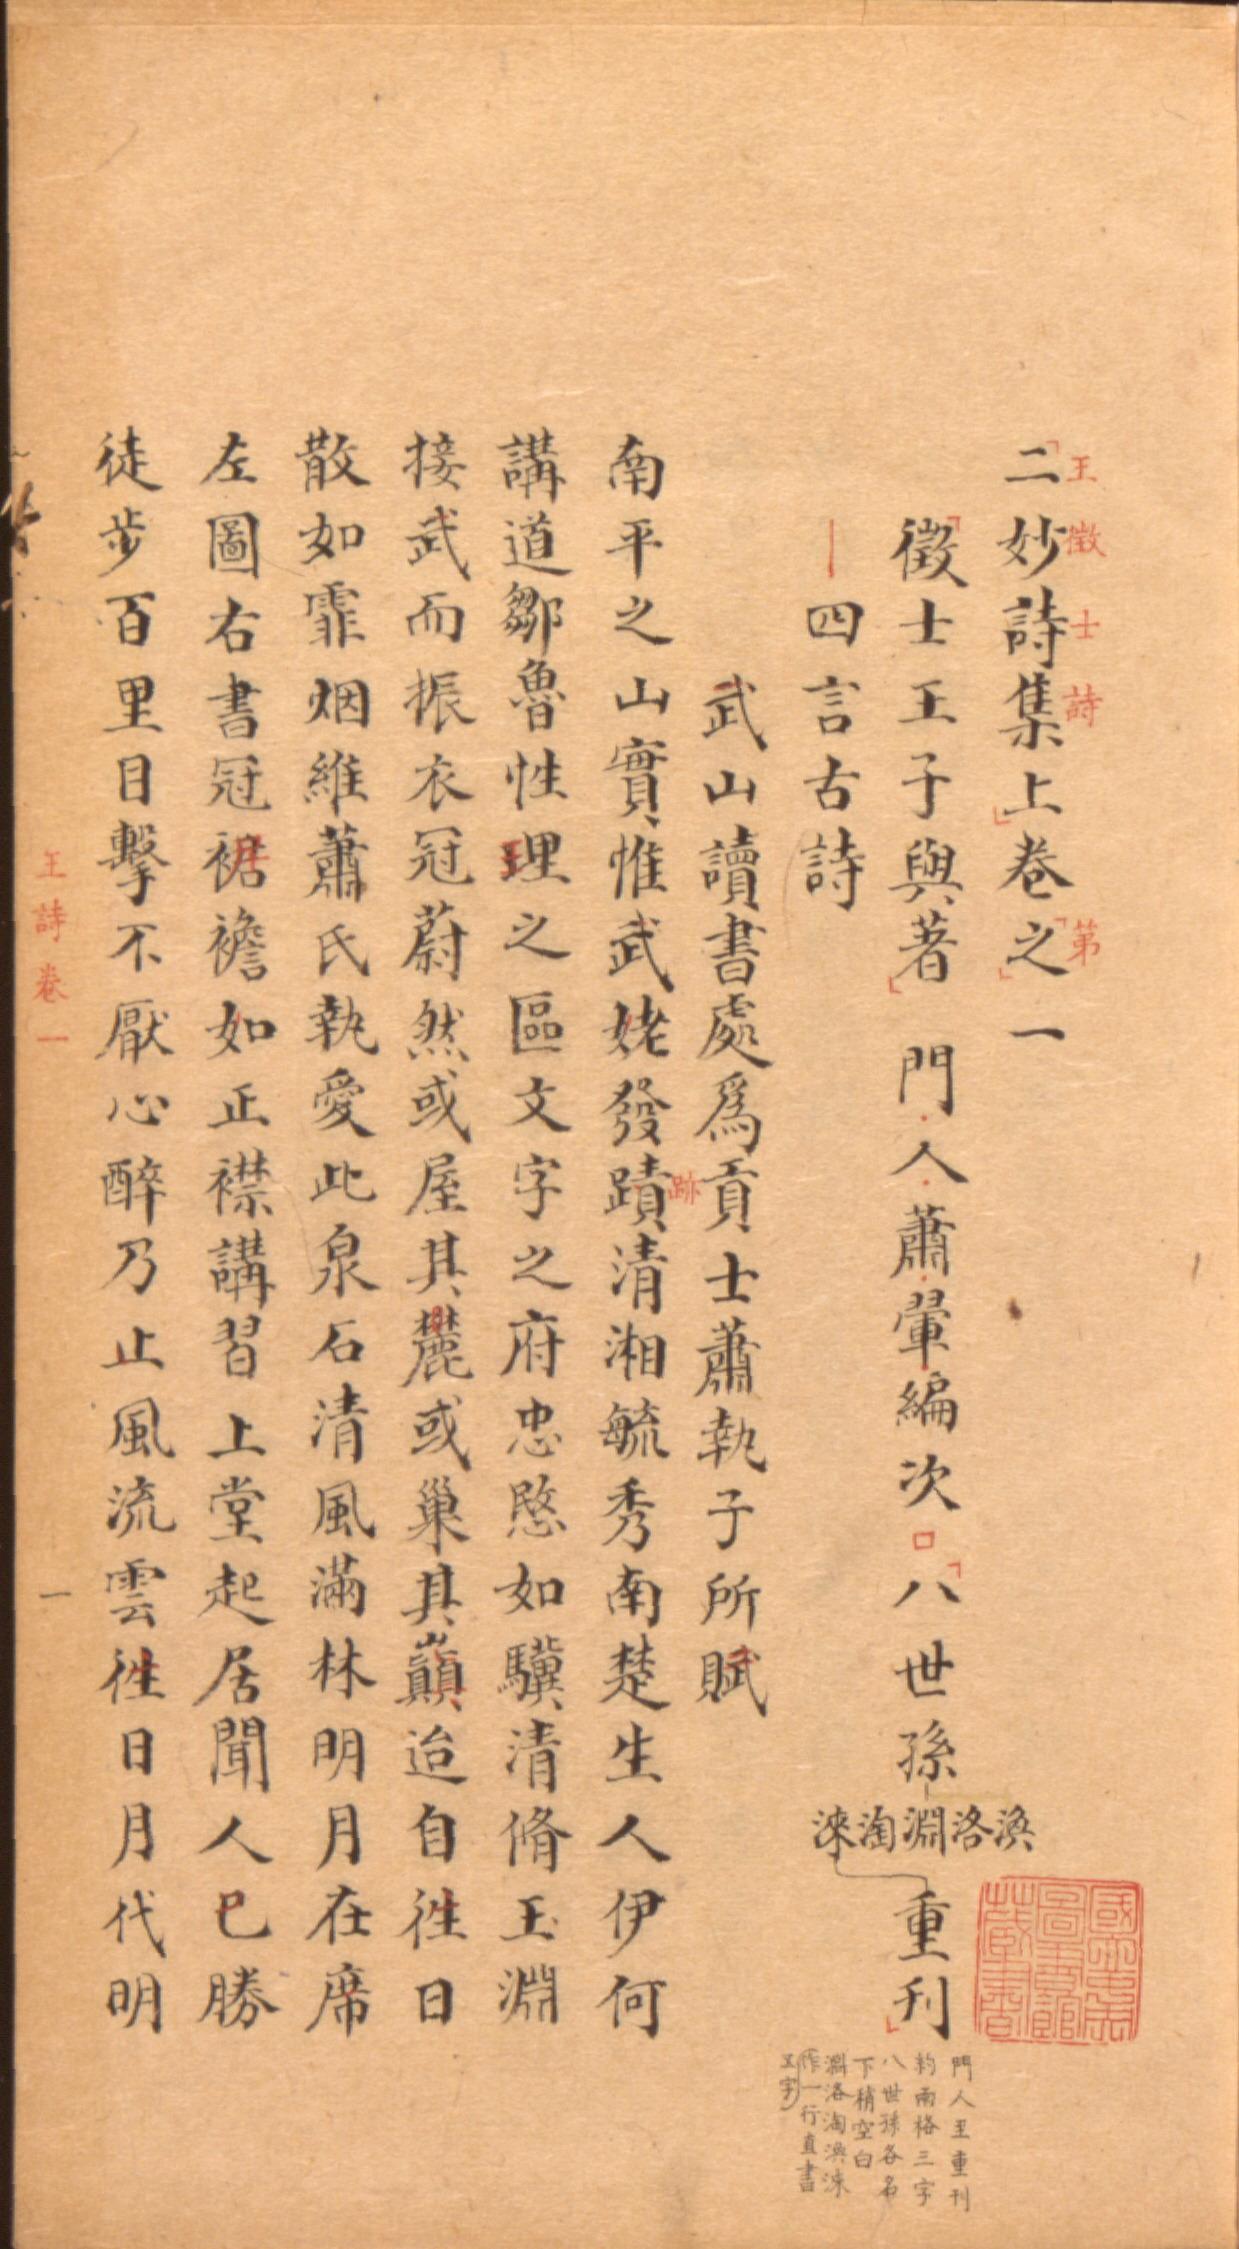 二妙詩集上卷之一
王徵士詩 第
徵士王子與著 門人蕭翬編次 八世孫
渙洛淵淘淶
重刊
四言古詩
武山讀書處爲貢士蕭執子所賦
南平之山實惟武姥發蹟清湘毓秀南楚生人伊何
跡
講道鄒魯性理之區文字之府忠愍如驥清脩玉淵
接武而振衣冠蔚然或屋其麓或巢其巔迨自徃日
散如霏烟維蕭氏執愛此泉石清風滿林明月在席
左圖右書冠裾襜如正襟講習上堂起居聞人已勝
徒步百里目擊不厭心醉乃止風流雲徃日月代明
王詩卷一
一
國立中央圖書館藏書
門人至重刊
約兩格三字
八世孫各名
下稍空白
淵洛淘渙淶
作一行直書
五字